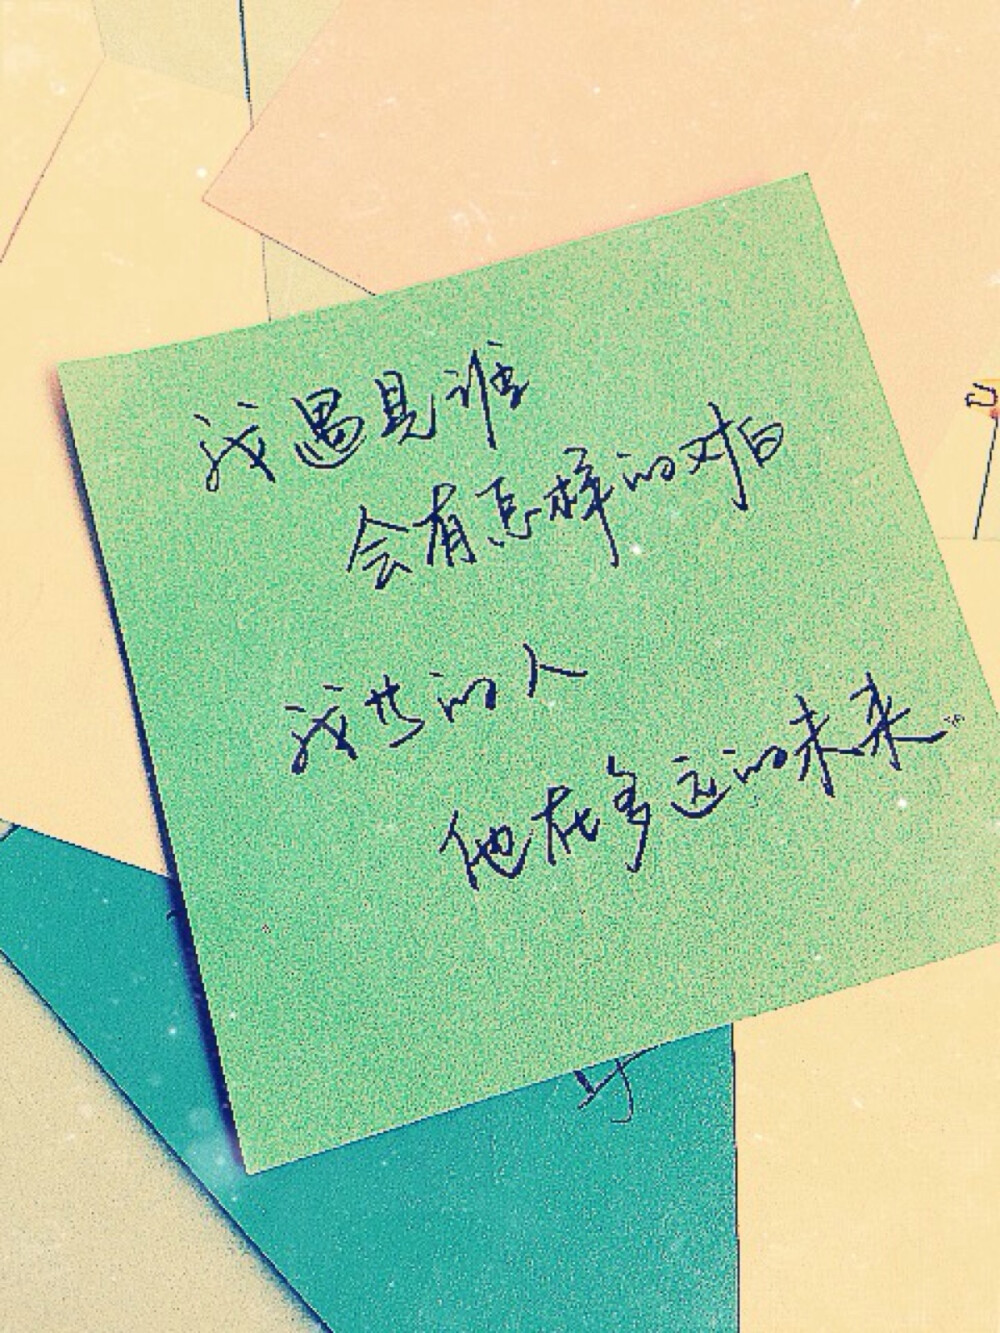 我遇见谁
会有怎样的对白
我等的人
他在多远的未来